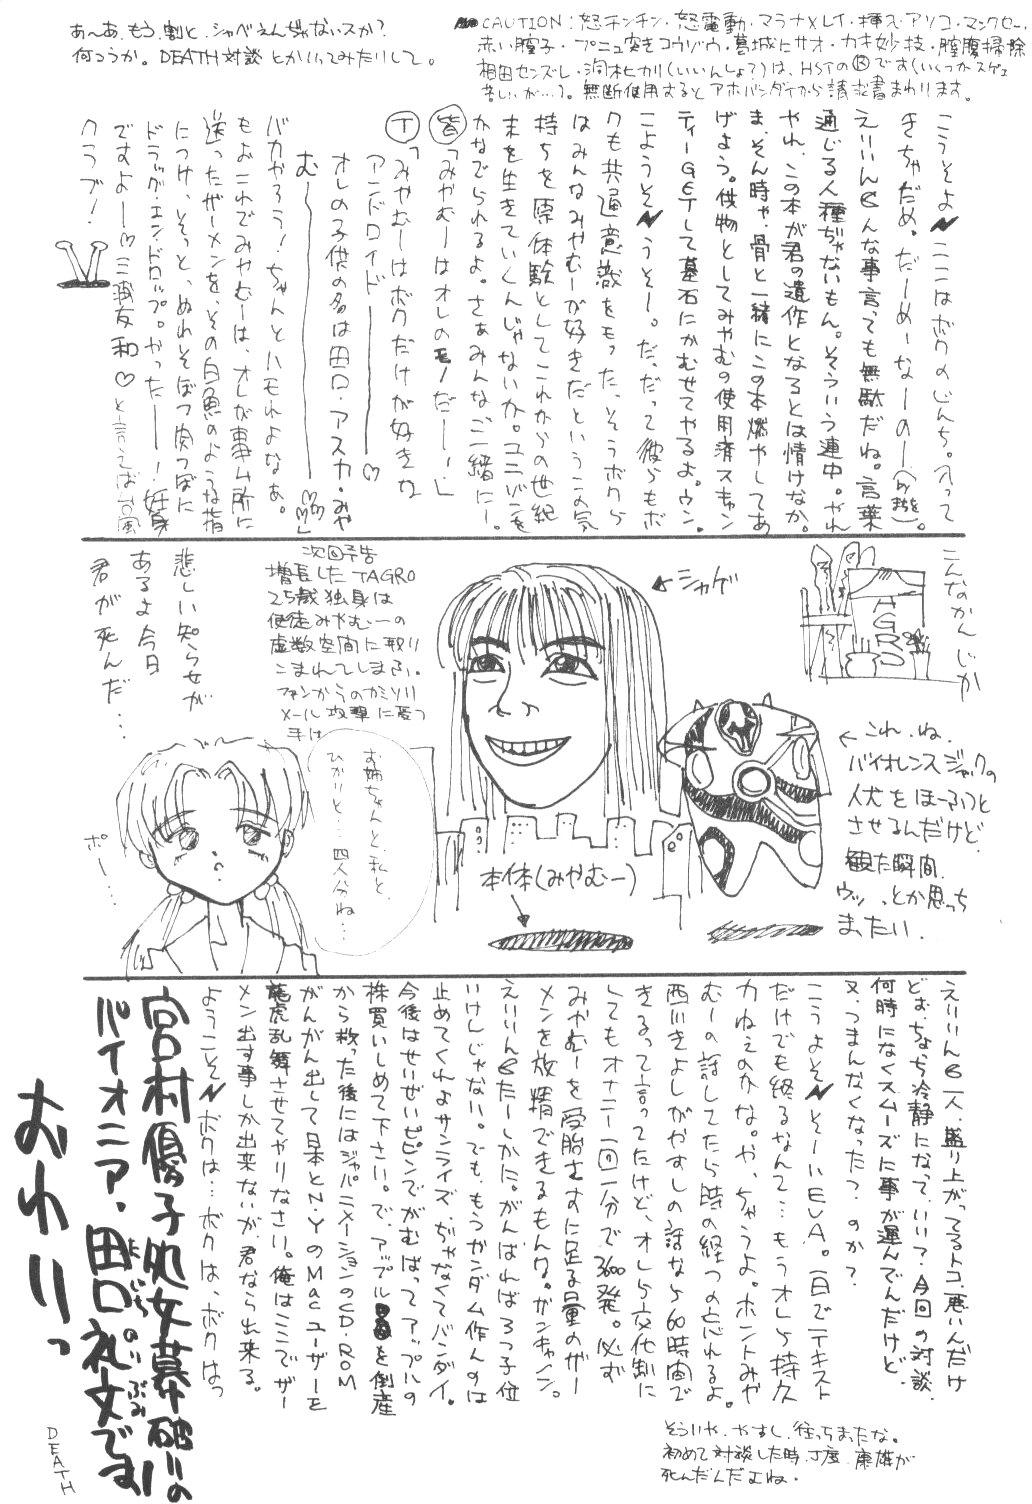 あ〜あ、もう、割と、シャベえんぢゃないスか?
何つうか。DEATH対談とかいってみたりして。
CAUTION:怒チンチン・怒電動・マラナメレイ・挿入・アソコ・マンクセー・
赤い膣子・プニュ突きコウゾウ・葛城ヒサオ・カキ妙技・膣腹掃除
相田センズレ・洞木ヒカリ(いいんしょ?)は、HSTの®です(いくつかスゲェ
苦しいが…)。無断使用するとアホバンダイから請求書まわります。
こうそよここはボクのじんち。入って
きちゃだめ。だーめーなーのー
えりいんらんな事言っても無駄だね。言葉
通じる人種ぢゃないもん。そういう連中。やれ
やれ、この本が君の遺作となるとは情けなか。
ま、そん時ゃ骨と一緒にこの本燃やしてあ
げよう。供物としてみやむの使用済スキャン
ティーGETして墓石にかむせてやるよ。ウン。
こようそうそー。だ、だって彼らもボ
クも共通意識をもった、そうボクら
はみんなみやむーが好きだというこの気
持ちを原体験としてこれからの世紀
末を生きていくんじゃないか。ユニゾンを
かなでられるよ。さぁみんなご一緒にー。
皆「みやむーはオレのモノだーー」
T「みやむーはボクだけが好きな
アンドロイド――♡
オレの子供の名は田口・アスカ・みや
む――♡♡♡」
バカやろう!ちゃんとハモれよなぁ。
もおこれでみやむーは、オレが事ム所に
送ったザーメンを、その白魚のような指
につけ、そっと、ぬれそぼつ肉つぼに
ドラッグ・エンド・ロップ。やったー――!妊娠
ですよー――♡三浦友和♡と言えば台風
クラブ!
こんなかんじか
TAGRO
シャゲ
これ、ね、
バイオレンスジャックの
人犬をほーふつと
させるんだけど、
観た瞬間、
ウッ…っとか思っち
まったい。
本体(みやむー)
次回予告
増長したTAGRO
25歳独身は
使徒みやむーの
虚数空間に取り
こまれてしまふ。
ファンからのカミソリ
メール攻撃に憂つ
手は
お姉ちゃんと、私と、
ひかりと…四人分ね…
悲しい知らせが
あるよ今日
君が死んだ…
ポー…
えりいんら一人、盛り上がってるトコ、悪いんだけ
ど、も、ちょち冷静になって、いい?今回の対談、
何時になくスムーズに事が運んでんだけど、
又、つまんなくなった?のか?
こうよそそーいEVA。一日でテキスト
だけでも終るなんて…もうオレら持久
力ねぇのかな。や、ちゃうよ。ホントみや
むーの話してたら時の経つの忘れるよ。
西川きよしがやすしの話なら60時間で
きるって言ってたけど、オレら交代制に
してもオナニー一回一分で3600発。必ず
みやむーを受胎さすに足る量のザー
メンを放精できるもんね。ガンキャノン。
えりいんらたーしかにがんばれば3つ子位
いけんじゃない。でも、もうガンダム作んのは
止めてくれよサンライズ・ぢゃなくてバンダイ。
今後はせいぜいピピンでがむばってアップルの
株買いしめて下さい。で、アップルを倒産
から救った後にはジャパニメーションのCD-ROM
がんがん出して日本とN.Y.のMacユーザーを
龍虎乱舞させてやりなさい。俺はここでザー
メン出す事しか出来ないが、君なら出来る。
ようこそボクは…ボクは、ボクはっ
そういや、やすし、往っちまったな。
初めて対談した時、丁度、康雄が
死んだんだよね。
宮村優子処女墓破りの
パイオニア、田口礼文です
おわりっ
DEATH